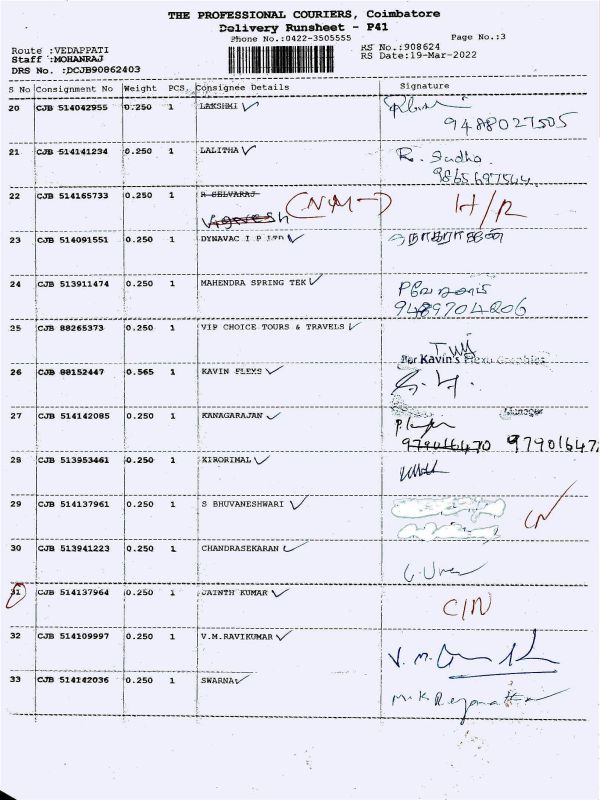 THE PROFESSIONAL COURIERS, Coimbatore
Delivery Runsheet - P41
Phone No.:0422-3505555
Page No.:3
Route :VEDAPPATI
RS No.:908624
Staff :MOHANRAJ
RS Date:19-Mar-2022
DRS No. :DCJB90862403
S No Consignment No Weight PCS. Consignee Details Signature
20 CJB 514042955 0.250 1 LAKSHMI
9488027505
21 CJB 514141234 0.250 1 LALITHA R. Sudha
9865697544
22 CJB 514165733 0.250 1 R SELVARAJ
23 CJB 514091551 0.250 1 DYNAVAC I P LTD
24 CJB 513911474 0.250 1 MAHENDRA SPRING TEK
9489704206
25 CJB 88265373 0.250 1 VIP CHOICE TOURS & TRAVELS
For Kavin's Flexo Graphics
26 CJB 88152447 0.565 1 KAVIN FLEXS
Manager
27 CJB 514142085 0.250 1 KANAGARAJAN
9790166470 97901647
28 CJB 513953461 0.250 1 KIRORIMAL
29 CJB 514137961 0.250 1 S BHUVANESHWARI
30 CJB 513941223 0.250 1 CHANDRASEKARAN
31 CJB 514137964 0.250 1 JAINTH KUMAR C/N
32 CJB 514109997 0.250 1 V.M.RAVIKUMAR
33 CJB 514142036 0.250 1 SWARNA